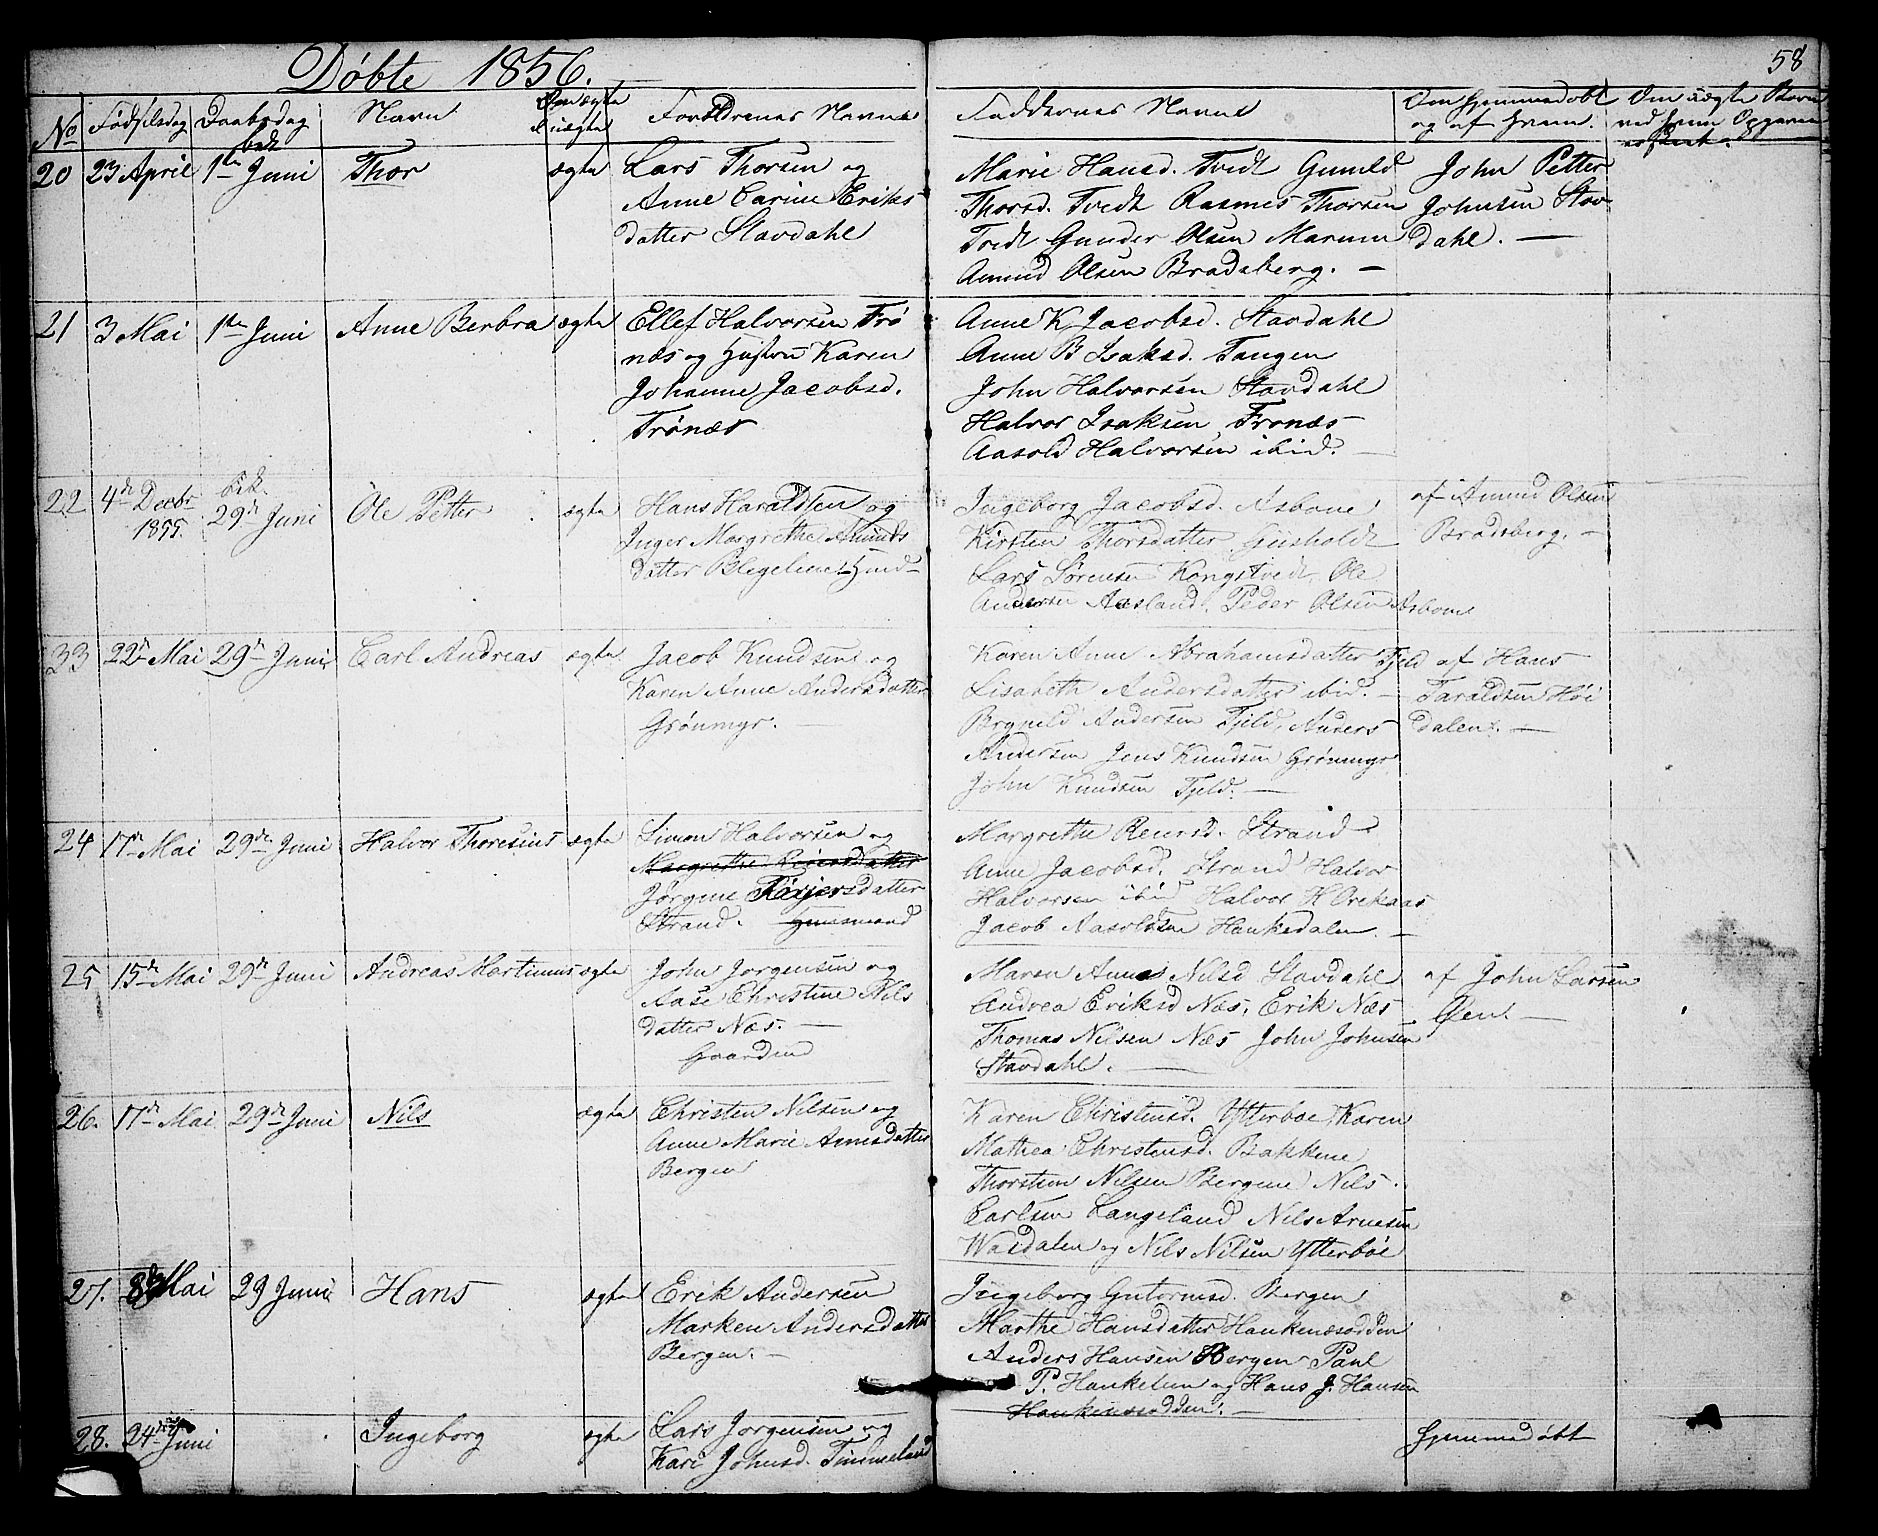 Døbte 1856.
58
No Fødselsdag Daabsdag Navn Om ægte Forældrenes Navne Faddernes Navne Om hjemmedøbt Om uægte Børn
bek uægte og af hvem. ved hvem Opgaven
20 23 April 1ste Juni Thor ægte Lars Thorsen og Marie Hansd. Tvedt Gunild John Petter
Anne Carine Eriks Thorsd. Tvedt Rasmus Thorsen Johnsen Stav
datter Stavdahl Tvedt Gunder Olsen dahl. —
Amund Olsen Bradsberg. —
21 3 Mai 1ste Juni Anne Berbra ægte Ellef Halvorsen Trö Anne K Jacobsd. Stavdahl
næs og Hustru Karen Anne B Isaksd. Tangen
Johanne Jacobsd. John Halvorsen Stavdahl
Trönæs Halvor Isaksen Tronæs
Aasold Halvorsen ibid. —
22 4de Decbr bek. Ole Petter ægte Hans Haraldsen og Ingeborg Jacobsd. Asbone af Amund Olsen
1855. 29de Juni Inger Margrethe Amunds Kirsten Thorsdatter Bradsberg. —
datter Lars Sørensen Kongstvedt, Ole
Andersen Aasland, Peder Olsen Asbone
33 22de Mai 29de Juni Carl Andreas ægte Jacob Knudsen og Karen Anne Abrahamsdatter Fjeld af Hans
Karen Anne Andersdatter Lisabeth Andersdatter ibid. — Taraldsen Höi
Grönmyr. — Brynild Andersen Fjeld, Anders dalen. —
Andersen Jens Knudsen Grönmyr
John Knudsen Fjeld. —
24 17de Mai 29de Juni Halvor Thoresius ægte Simon Halvorsen og Margrethe Reiersd. Strand
Margrethe Reiersdatter Anne Jacobsd. Strand Halvor
Jørgine Tärjersdatter Halvorsen ibid Halvor H
Strand. Huusmand Jacob Aasoldsen Hankedalen. —
25 15de Mai 29de Juni Andreas Martinius ægte John Jorgensen og Maren Anne Nilsd Stavdahl af John Larsen
Aase Christine Nils Andrea Eriksd Næs, Erik Næs Öen. —
datter Næs. — Thomas Nilsen Næs John Johnsen
Gaarden Stavdahl. —
26. 17de Mai 29de Juni Nils ægte Christen Nilsen og Karen Christensd. Ytterböe, Karen
Anne Marie Arnesdatter Mathea Christensd. Bakkene
Bergen Thorsten Nilsen Bergene Nils
Carlsen Langeland Nils Arnesen
Wasdalen og Nils Nilsen Ytterböe
27. Mai 29 Juni Hans ægte Erik Andersen Ingeborg Gutormsd. Bergen
Marken Andersdatter Marthe Hansdatter Hankenæsodden
Bergen. — Anders Hansen Bergen Paul
P. Hankelien og Hans J. Hansen
Hankenæsodden. —
28. 24de Juni Ingeborg ægte Lars Jorgensen og Hjemmedøbt
Kari Johnsd. Timmeland